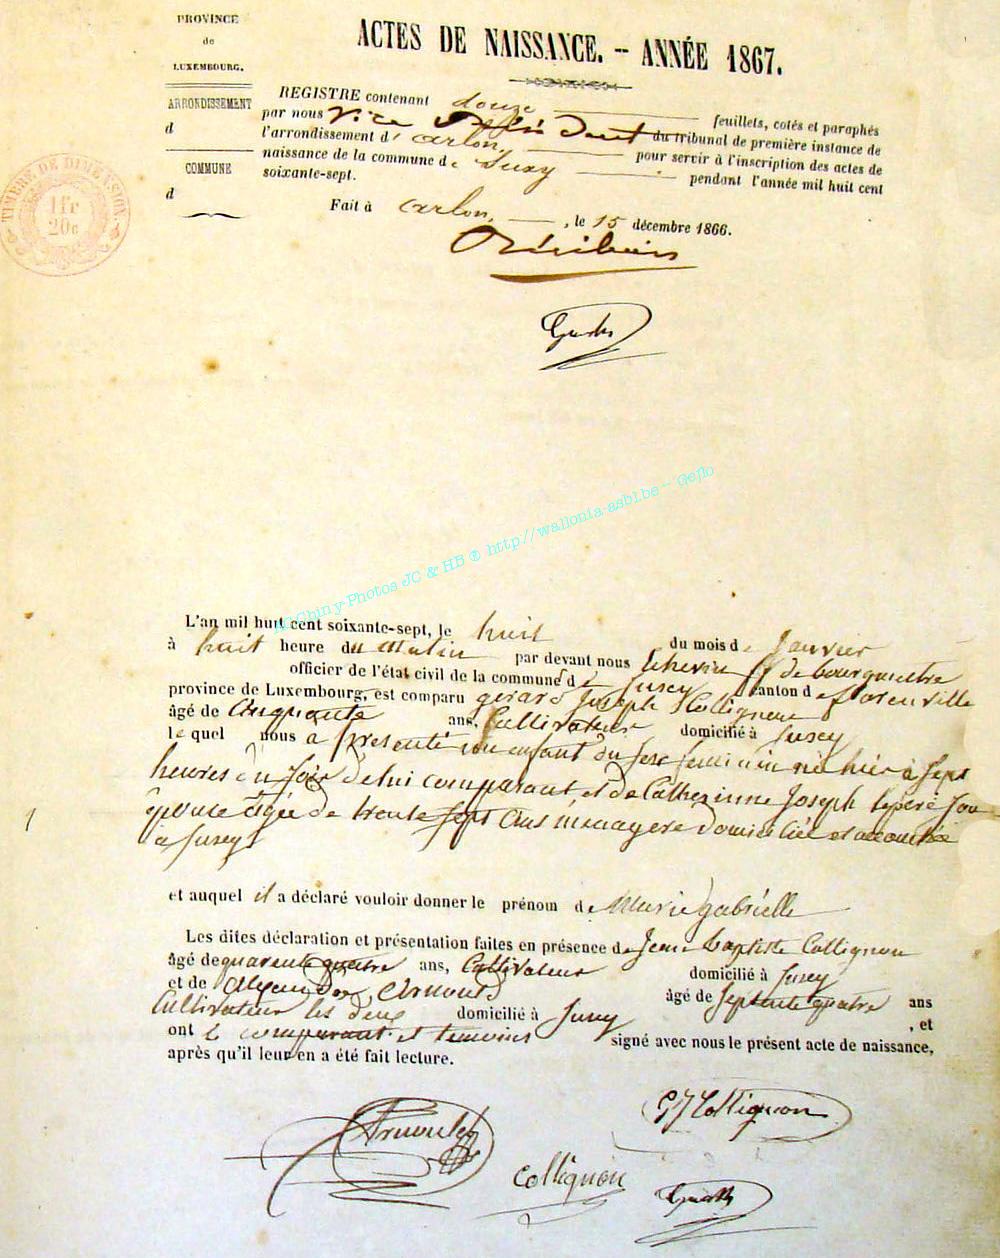 PROVINCE
de
LUXEMBOURG.
ARRONDISSEMENT
d
COMMUNE
d
TIMBRE DE DIMENSION
1 fr
20c
ACTES DE NAISSANCE. -- ANNÉE 1867.
REGISTRE contenant douze feuillets, cotés et paraphés
par nous Vice Président du tribunal de première instance de
l'arrondissement d' arlon, pour servir à l'inscription des actes de
naissance de la commune de Suxy pendant l'année mil huit cent
soixante-sept.
Fait à arlon, , le 15 décembre 1866.
HC Chiny Photos JC & HB ® http://wallonia-asbl.be -- Geflo
L'an mil huit cent soixante-sept, le huit du mois de Janvier
à huit heure du matin par devant nous Echevin ff de bourgmestre
officier de l'état civil de la commune de Suxey canton de florenville
province de Luxembourg, est comparu gérard Joseph Collignon
âgé de Cinquante ans, Cultivateur domicilié à Suxey
lequel nous a présenté un enfant du sexe feminin né hier à Sept
heures du soir de lui comparant et de Catherinne Joseph
épouse âgée de trente sept ans ménagère domiciliée et accouchée
à Suxey
et auquel il a déclaré vouloir donner le prénom de Marie gabrielle
Les dites déclaration et présentation faites en présence de Jean baptiste Collignon
âgé de quarente quatre ans, Cultivateur domicilié à Suxey
et de Arnould âgé de septente quatre ans
Cultivateur les deux domicilié à Suxey , et
ont le comparant et temoins signé avec nous le présent acte de naissance,
après qu'il leur en a été fait lecture.
Arnould
GJ Collignon
Collignon